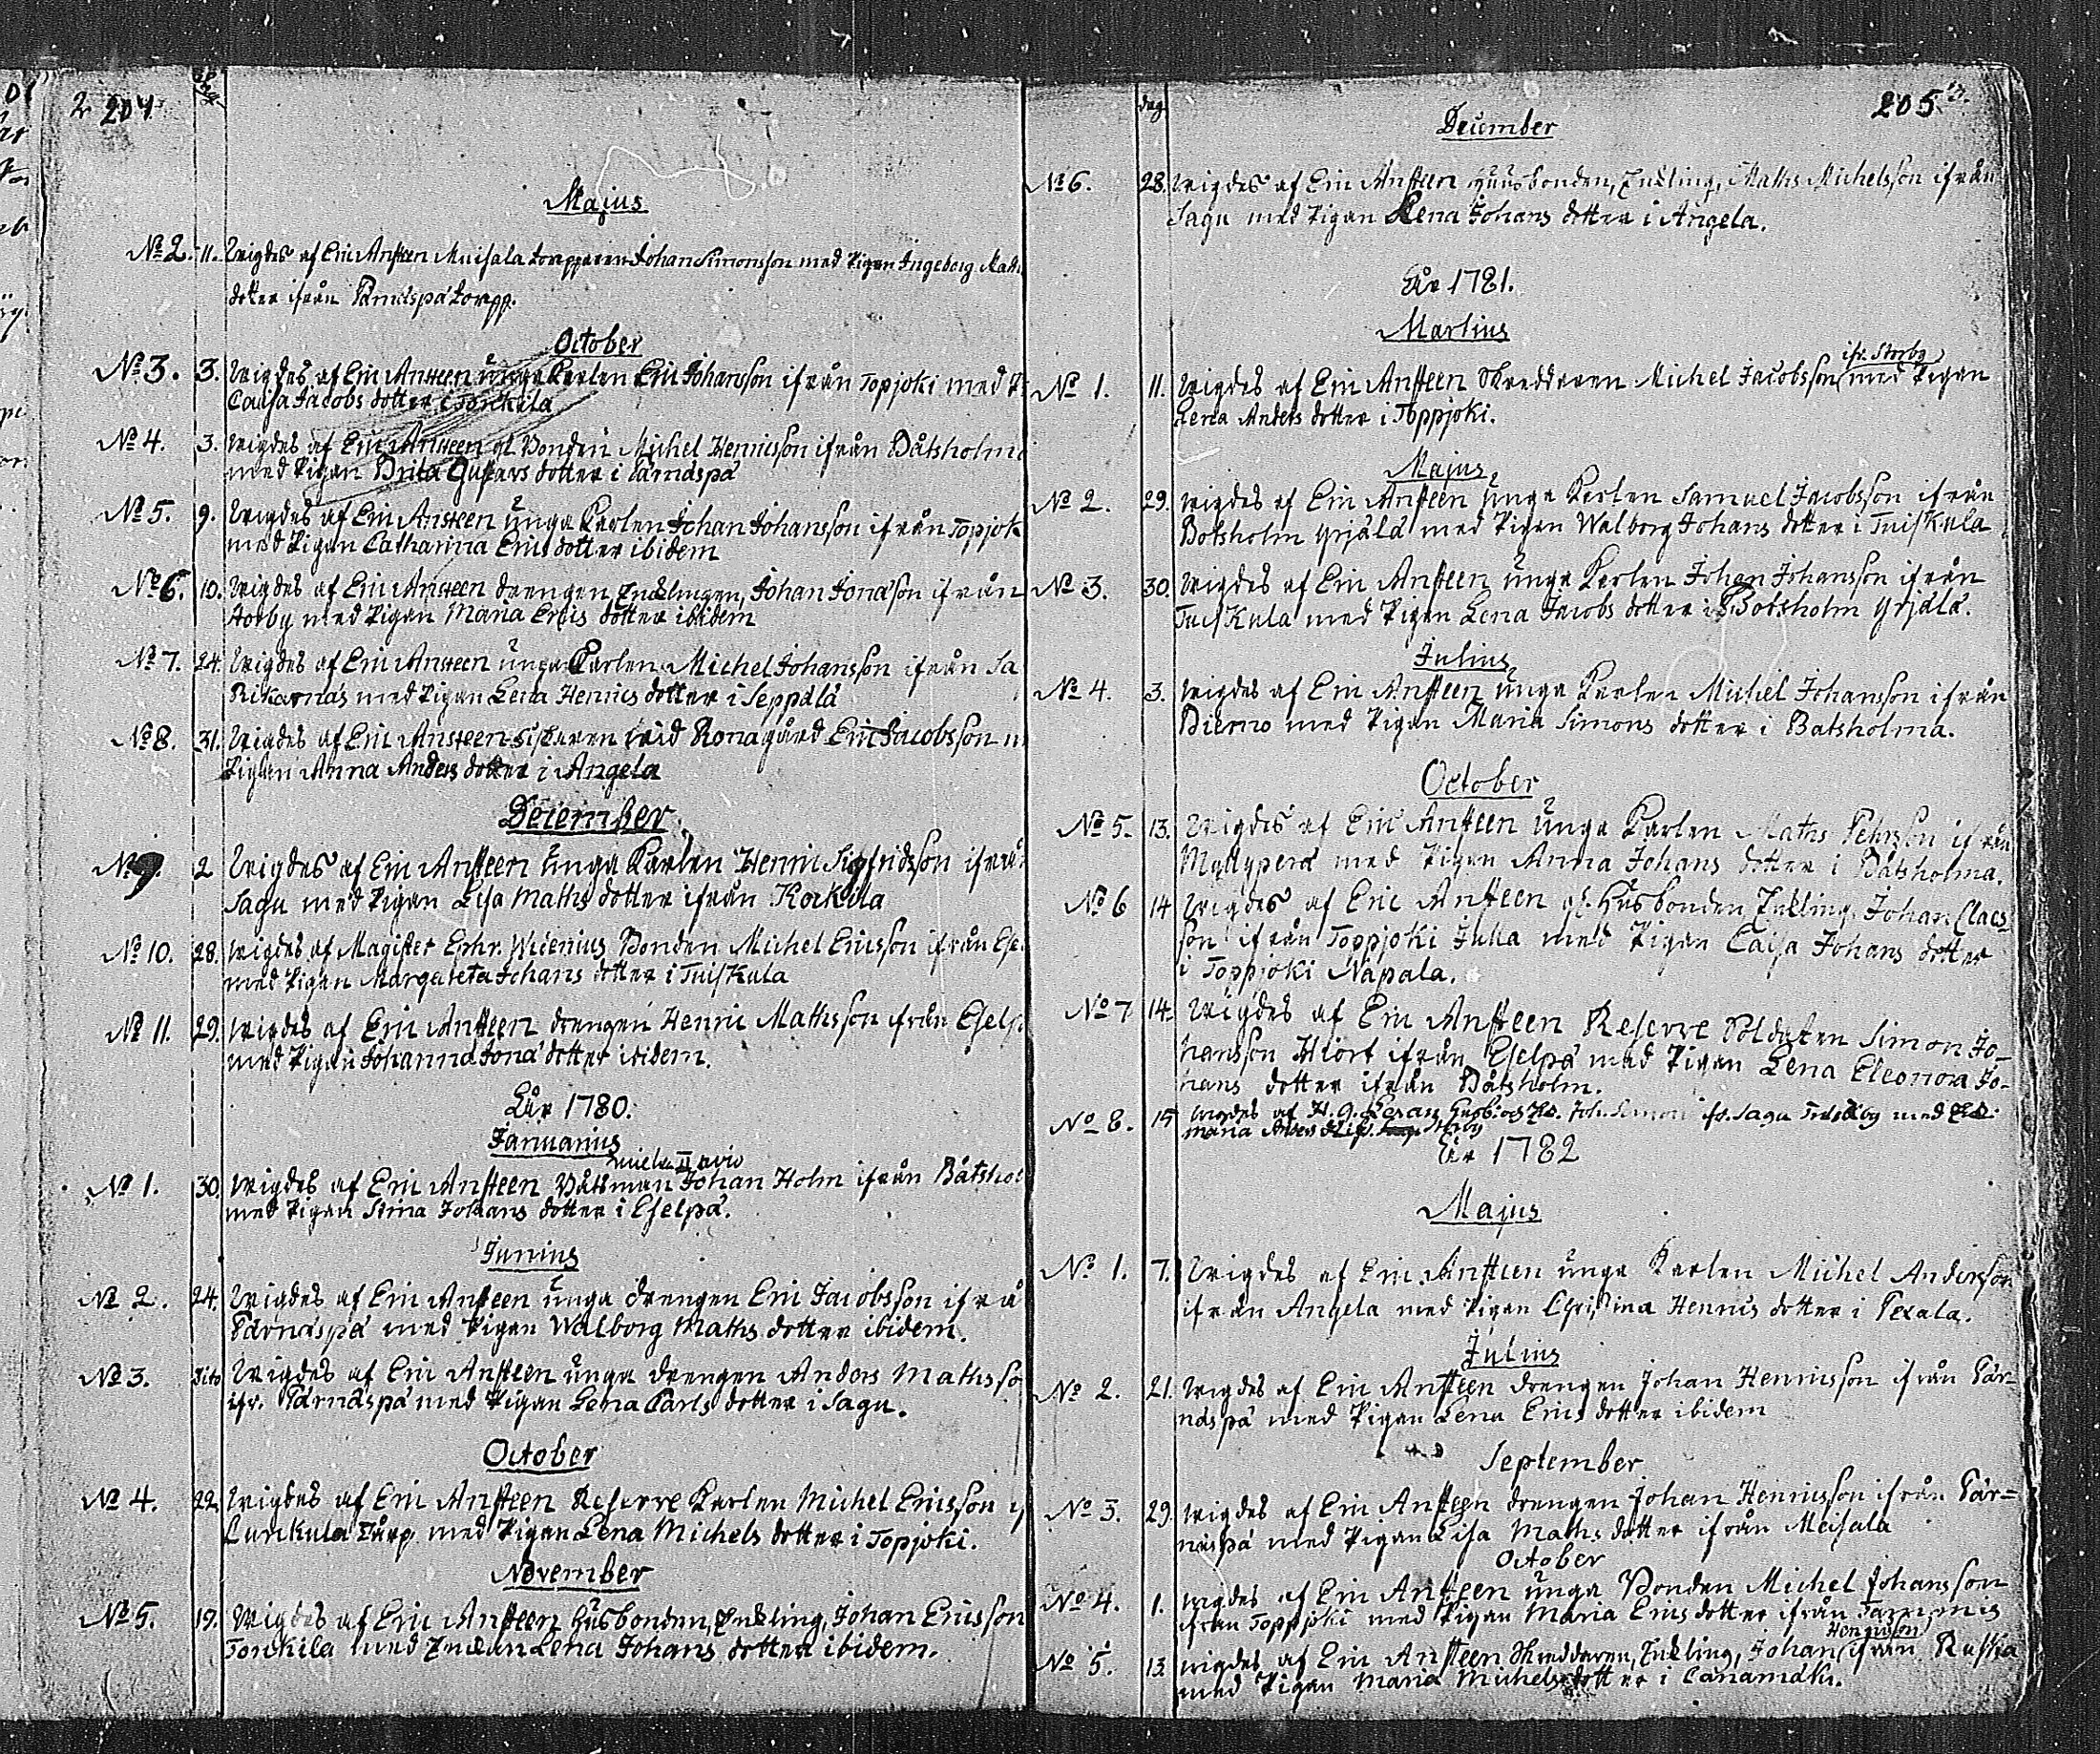 2 204
Majus
No 2. 11. Wigdes af Eric Ansteen Meisala torpparen Johan Simonsson med Pigan Ingeborg Maths
dotter ifrån Pärnäspä torpp.
October
No 3. 3. Wigdes af Eric Ansteen unga Karlen Eric Johansson ifrån Topjoki med Pi
Caisa Jacobs dotter i Tonkila
No 4. 3. Wigdes af Eric Ansteen gl Bonden Michel Henricsson ifrån Båtsholm
med Pigan Brita Gustavs dotter i Pärnäspä
No 5. 9. Wigdes af Eric Ansteen Unga Karlen Johan Johansson ifrån Topjok
med Pigan Catharina Erics dotter ibidem
No 6. 10. Wigdes af Eric Ansteen drengen Encklingen, Johan Jonasson ifrån
Storby med Pigan Maria Erics dotter ibidem
No 7. 24. Wigdes af Eric Ansteen unga Karlen Michel Johansson ifrån Sa
Rikarnäs med Pigan Lena Henrics dotter i Seppälä
No 8. 31. Wigdes af Eric Ansteen fiskaren wid Rona gård Eric Jacobsson m
Pigan Anna Anders dotter i Angela
December
No 9. 2 Wigdes af Eric Ansteen unga Karlen Henric Sigfridsson ifrån
Sagu med Pigan Lisa Maths dotter ifrån Kockila
No 10. 28. Wigdes af Magister Ephr. Wicenius Bonden Michel Ericsson ifrån Ese
med Pigan Margareta Johans dotter i Tuiskula
No 11. 29. Wigdes af Eric Ansteen drengen Henric Mathsson ifrån Eselp
med Pigan Johanna Jona dotter ibidem.
Åår 1780.
Januarius
30. No 1. Wigdes af Eric Ansteen Båtsman Johan Holm ifrån Båtshol
med Pigan Stina Johans dotter i Eselpä.
Junius
No 2. 24. Wigdes af Eric Ansteen unga drengen Eric Jacobsson ifrå
Pärnäspä med Pigan Walborg Maths dotter ibidem.
No 3. Dito Wigdes af Eric Ansteen unga drengen Anders Mathsso
ifr. Pärnäspä med Pigan Lena Carls dotter i Sagu.
October
No 4. 22. Wigdes af Eric Ansteen Reserve Karlen Michel Ericsson if
Lunkula Tårp med Pigan Lena Michels dotter i Topjoki.
November
No 5. 19. Wigdes af Eric Ansteen Husbonden, Enckling, Johan Ericsson
Tonkila med Enckan Lena Johans dotter ibidem.
dag
205
December
No 6. 28. Wigdes af Eric Ansteen Husbonden, Enkling, Maths Michelsson ifrån
Sagu med Pigan Lena Johans dotter i Angela.
Åår 1781.
Martius
No 1. 11. Wigdes af Eric Ansteen Skreddaren Michel Jacobsson ifr. Storby med Pigan
Lena Anders dotter i Toppjoki.
Majus
No 2. 29. Wigdes af Eric Ansteen Unga Karlen Samuel Jacobsson ifrån
Botsholm Yrjälä med Pigan Walborg Johans dotter i Tuiskula
No 3. 30. Wigdes af Eric Ansteen unga Karlen Johan Johansson ifrån
Tuiskula med Pigan Lena Jacobs dotter i Botsholm Yrjälä.
Julius
No 4. 3. Wigdes af Eric Ansteen unga Karlen Michel Johansson ifrån
Bierno med Pigan Maria Simons dotter i Batsholma.
October
No 5. 13. Wigdes af Eric Ansteen Unga Karlen Maths Pehrsson ifrån
Myllyperä med Pigan Anna Johans dotter i Båtsholma.
No 6 14 Wigdes af Eric Ansteen gl. Husbonden Enkling, Johan Claes-
son ifrån Toppjoki Julla med Pigan Caisa Johans dotter
i Toppjoki Näpala.
No 7 14. Wigdes af Eric Ansteen Reserve Soldaten Simon Jo-
hansson Hiort ifrån Eselpä med Pigan Lena Eleonora Jo-
hans dotter ifrån Båtsholm.
No 8. 15 Wigdes af H. Joh. Simon ifr. Sagu med
Maria Anders
År 1782
Majus
No 1. 7. Wigdes af Eric Ansteen unga Karlen Michel Andersson
ifrån Angela med Pigan Christina Henrics dotter i Pexala.
Julius
No 2. 21. Wigdes af Eric Ansteen drengen Johan Henricsson ifrån Pär-
näspä med Pigan Lena Erics dotter ibidem
September
No 3. 29. Wigdes af Eric Ansteen drengen Johan Henricsson ifrån Pär=
näspä med Pigan Lisa Maths dotter ifrån Meisala
October
No 4. 1. Wigdes af Eric Ansteen unga Bonden Michel Johansson
ifrån Toppjoki med Pigan Maria Erics dotter ifrån Tammnis
No 5. 13. Wigdes af Eric Ansteen Skreddaren, Enkling, Johan Henricsson ifrån Ruskia
med Pigan Maria Michels dotter i Canamäki.